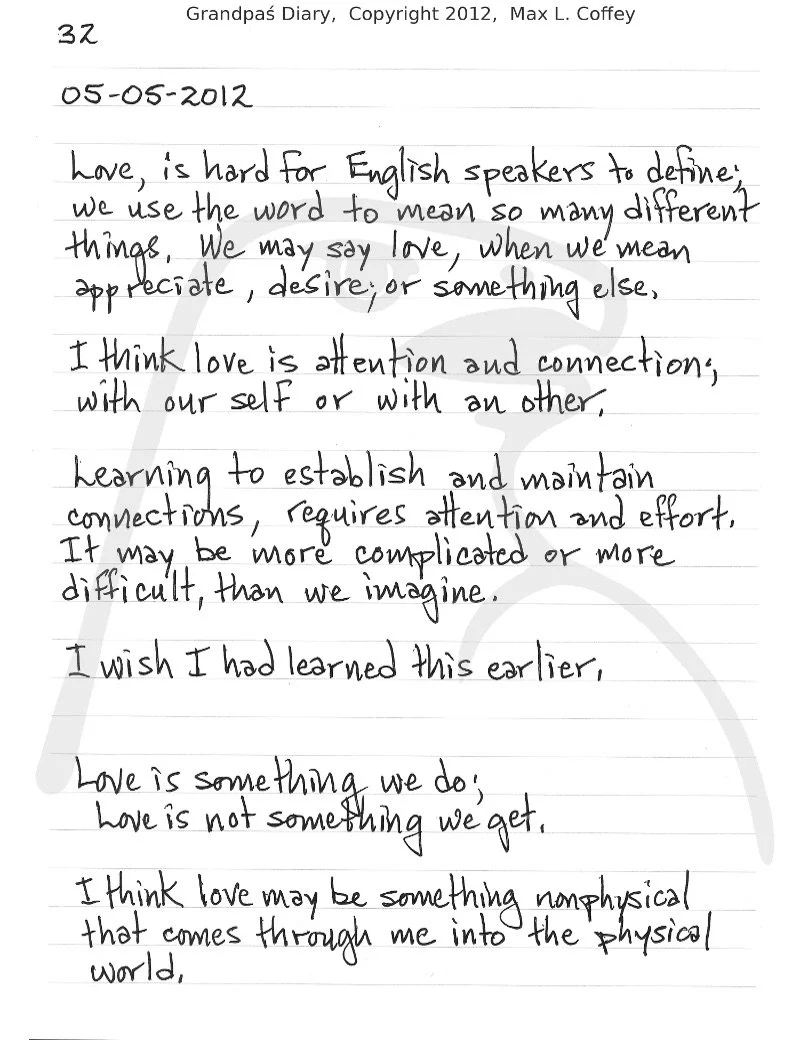 Grandpaś Diary,  Copyright 2012,  Max L. Coffey
32
05-05-2012
Love, is hard for English speakers to define;
we use the word to mean so many different
things. We may say love, when we mean
appreciate, desire; or something else.
I think love is attention and connection;
with our self or with an other.
Learning to establish and maintain
connections, requires attention and effort.
It may be more complicated or more
difficult, than we imagine.
I wish I had learned this earlier.
Love is something we do;
Love is not something we get.
I think love may be something nonphysical
that comes through me into the physical
world.